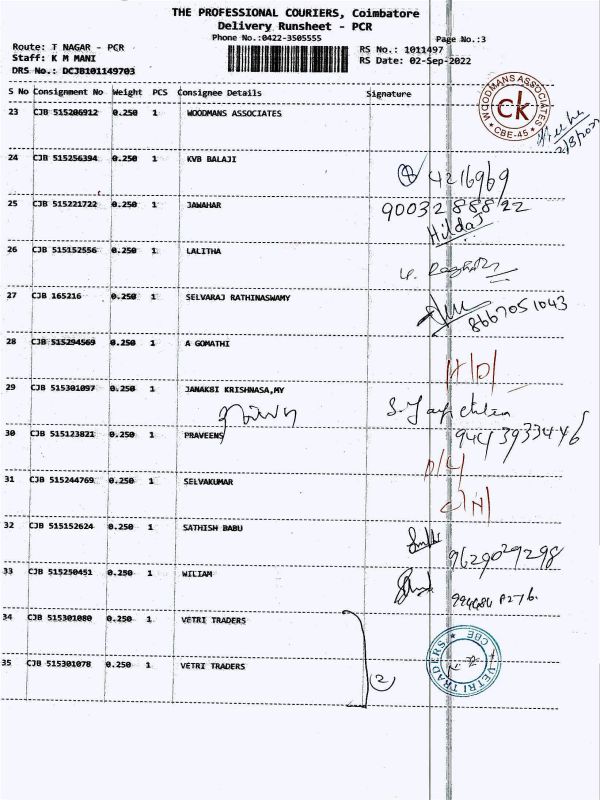 THE PROFESSIONAL COURIERS, Coimbatore
Delivery Runsheet - PCR
Phone No.:0422-3505555
Page No.:3
Route: T NAGAR - PCR
Staff: K M MANI
DRS No.: DCJB101149703
RS No.: 1011497
RS Date: 02-Sep-2022
S No Consignment No Weight PCS Consignee Details Signature
23 CJB 515206912 0.250 1 WOODMANS ASSOCIATES
WOODMANS ASSOCIATES
ck
CBE-45
24 CJB 515256394 0.250 1 KVB BALAJI
4216969
25 CJB 515221722 0.250 1 JAWAHAR
9003288822
Hilda J
26 CJB 515152556 1 LALITHA
27 CJB 165216 0.250 1 SELVARAJ RATHINASWAMY
8667051043
28 CJB 515294569 0.250 1 A GOMATHI
29 CJB 515301097 0.250 1 JANAKBI KRISHNASA,MY
30 CJB 515123821 0.250 1 PRAVEENS
9443933446
D/L
31 CJB 515244769 0.250 1 SELVAKUMAR
32 CJB 515152624 0.250 1 SATHISH BABU
9629029298
33 CJB 515250451 0.250 1 WILIAM
34 CJB 515301080 0.250 1 VETRI TRADERS
35 CJB 515301078 0.250 1 VETRI TRADERS
2
VETRI TRADERS
CBE